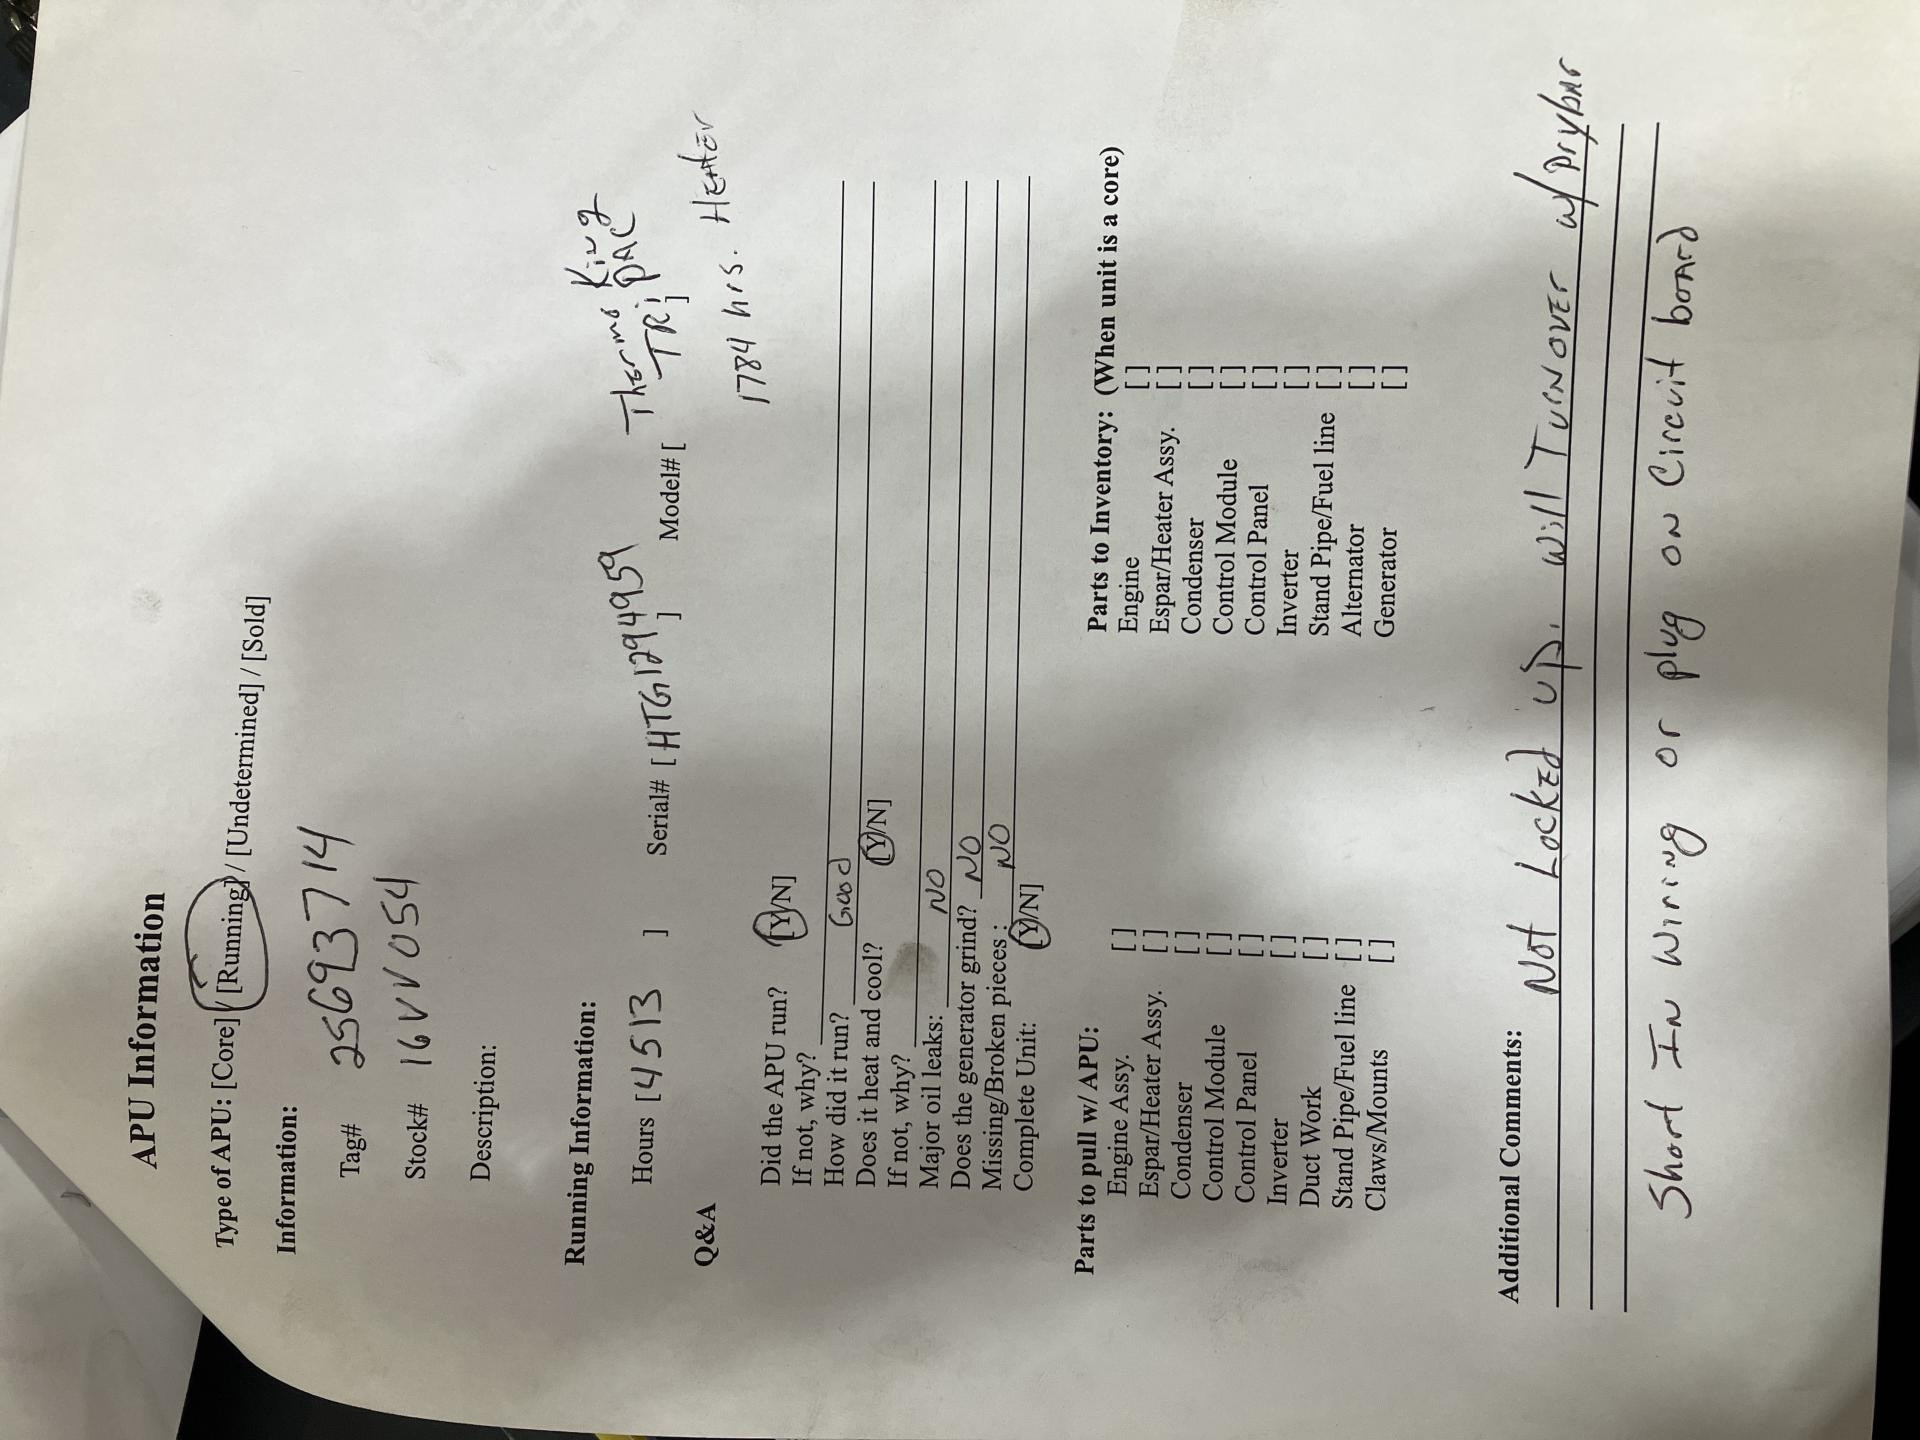 APU Information
Type of APU: [Core] / [Running] / [Undetermined] / [Sold]
Information:
Tag# 25693714
Stock# 16VV054
Description:
Running Information:
Thermo King
Hours [4513 ] Serial# [HTG1294959 ] Model# [ TRiPAC ]
1784 hrs. Heater
Q&A
Did the APU run? [Y/N]
If not, why?
How did it run? Good
Does it heat and cool? [Y/N]
If not, why?
Major oil leaks: NO
Does the generator grind? NO
Missing/Broken pieces : NO
Complete Unit: [Y/N]
Parts to pull w/ APU: Parts to Inventory: (When unit is a core)
Engine Assy. [ ] Engine [ ]
Espar/Heater Assy. [ ] Espar/Heater Assy. [ ]
Condenser [ ] Condenser [ ]
Control Module [ ] Control Module [ ]
Control Panel [ ] Control Panel [ ]
Inverter [ ] Inverter [ ]
Duct Work [ ] Stand Pipe/Fuel line [ ]
Stand Pipe/Fuel line [ ] Alternator [ ]
Claws/Mounts [ ] Generator [ ]
Additional Comments:
Not Locked up. Will Turnover w/ prybar
Short In wiring or plug on Circuit board